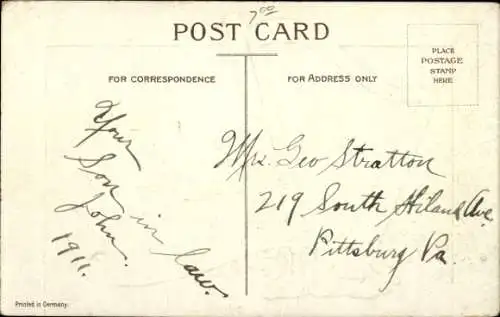 7.00
POST CARD
PLACE
POSTAGE
STAMP
HERE
FOR CORRESPONDENCE
FOR ADDRESS ONLY
Your
Son in law.
John.
1911.
Mrs. Geo Stratton
219 South Hiland Ave.
Pittsburg Pa.
Printed in Germany.